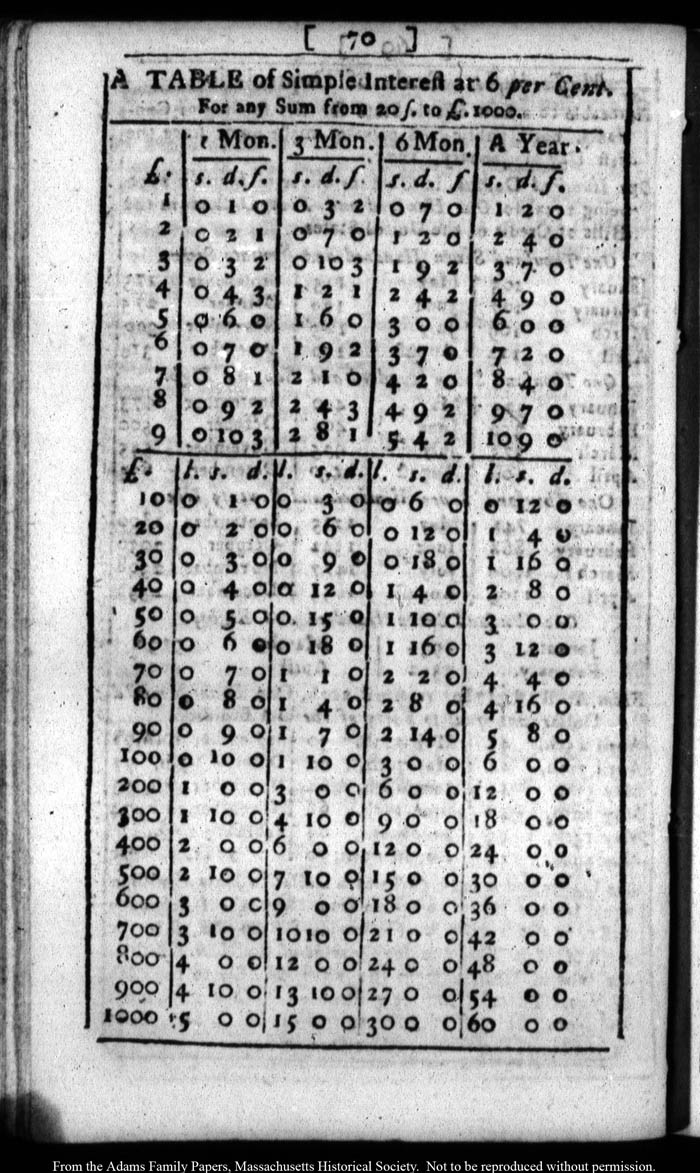 [ 70 ]
A TABLE of Simple Interest at 6 per Cent.
For any Sum from 20 ſ. to £. 1000.
1 Mon. 3 Mon. 6 Mon. A Year.
£. s. d. f. s. d. f. s. d. f s. d. f.
1 0 1 0 0 3 2 0 7 0 1 2 0
2 0 2 1 0 7 0 1 2 0 2 4 0
3 0 3 2 0 10 3 1 9 2 3 7 0
4 0 4 3 1 2 1 2 4 2 4 9 0
5 0 6 0 1 6 0 3 0 0 6 0 0
6 0 7 0 1 9 2 3 7 0 7 2 0
7 0 8 1 2 1 0 4 2 0 8 4 0
8 0 9 2 2 4 3 4 9 2 9 7 0
9 0 10 3 2 8 1 5 4 2 10 9 0
£. l. s. d. l. s. d. l. s. d. l. s. d.
10 0 1 0 0 3 0 0 6 0 0 12 0
20 0 2 0 0 6 0 0 12 0 1 4 0
30 0 3 0 0 9 0 0 18 0 1 16 0
40 0 4 0 0 12 0 1 4 0 2 8 0
50 0 5 0 0 15 0 1 10 0 3 0 0
60 0 6 0 0 18 0 1 16 0 3 12 0
70 0 7 0 1 1 0 2 2 0 4 4 0
80 0 8 0 1 4 0 2 8 0 4 16 0
90 0 9 0 1 7 0 2 14 0 5 8 0
100 0 10 0 1 10 0 3 0 0 6 0 0
200 1 0 0 3 0 0 6 0 0 12 0 0
300 1 10 0 4 10 0 9 0 0 18 0 0
400 2 0 0 6 0 0 12 0 0 24 0 0
500 2 10 0 7 10 0 15 0 0 30 0 0
600 3 0 0 9 0 0 18 0 0 36 0 0
700 3 10 0 10 10 0 21 0 0 42 0 0
800 4 0 0 12 0 0 24 0 0 48 0 0
900 4 10 0 13 10 0 27 0 0 54 0 0
1000 5 0 0 15 0 0 30 0 0 60 0 0
From the Adams Family Papers, Massachusetts Historical Society. Not to be reproduced without permission.